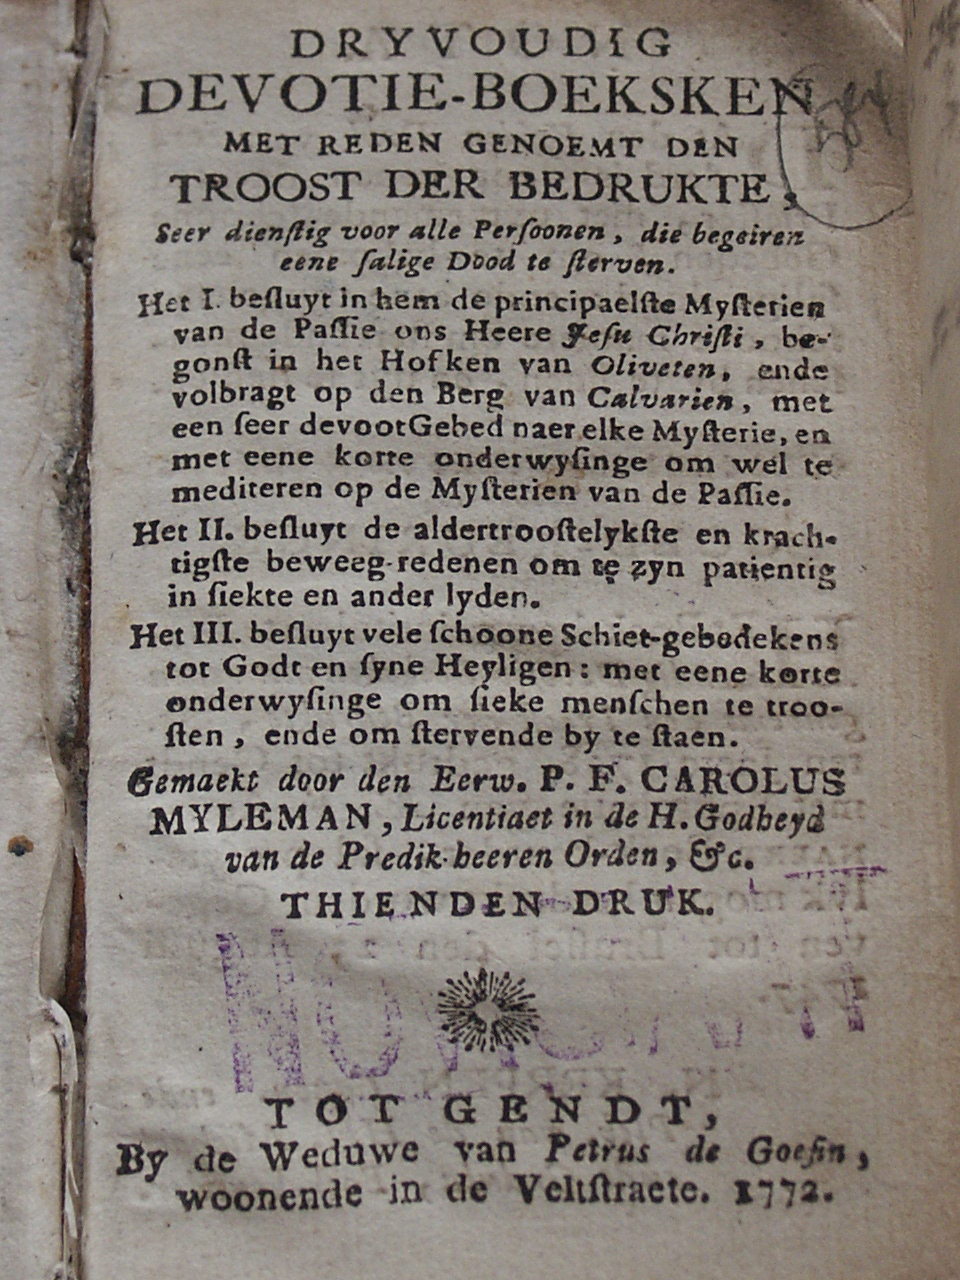 DRYVOUDIG
DEVOTIE-BOEKSKEN
MET REDEN GENOEMT DEN
TROOST DER BEDRUKTE,
Seer dienſtig voor alle Perſoonen, die begeiren
eene ſalige Dood te ſterven.
Het I. beſluyt in hem de principaelſte Myſterien
van de Paſſie ons Heere Jeſu Chriſti, be-
gonſt in het Hofken van Oliveten, ende
volbragt op den Berg van Calvarien, met
een ſeer devoot Gebed naer elke Myſterie, en
met eene korte onderwyſinge om wel te
mediteren op de Myſterien van de Paſſie.
Het II. beſluyt de aldertrooſtelykſte en krach-
tigſte beweeg-redenen om te zyn patientig
in ſiekte en ander lyden.
Het III. beſluyt vele ſchoone Schiet-gebedekens
tot Godt en ſyne Heyligen: met eene korte
onderwyſinge om ſieke menſchen te troo-
ſten, ende om ſtervende by te ſtaen.
Gemaekt door den Eerw. P. F. CAROLUS
MYLEMAN, Licentiaet in de H. Godheyd
van de Predik-heeren Orden, &c.
THIENDEN DRUK.
TOT GENDT,
By de Weduwe van Petrus de Goeſin,
woonende in de Veltſtraete. 1772.